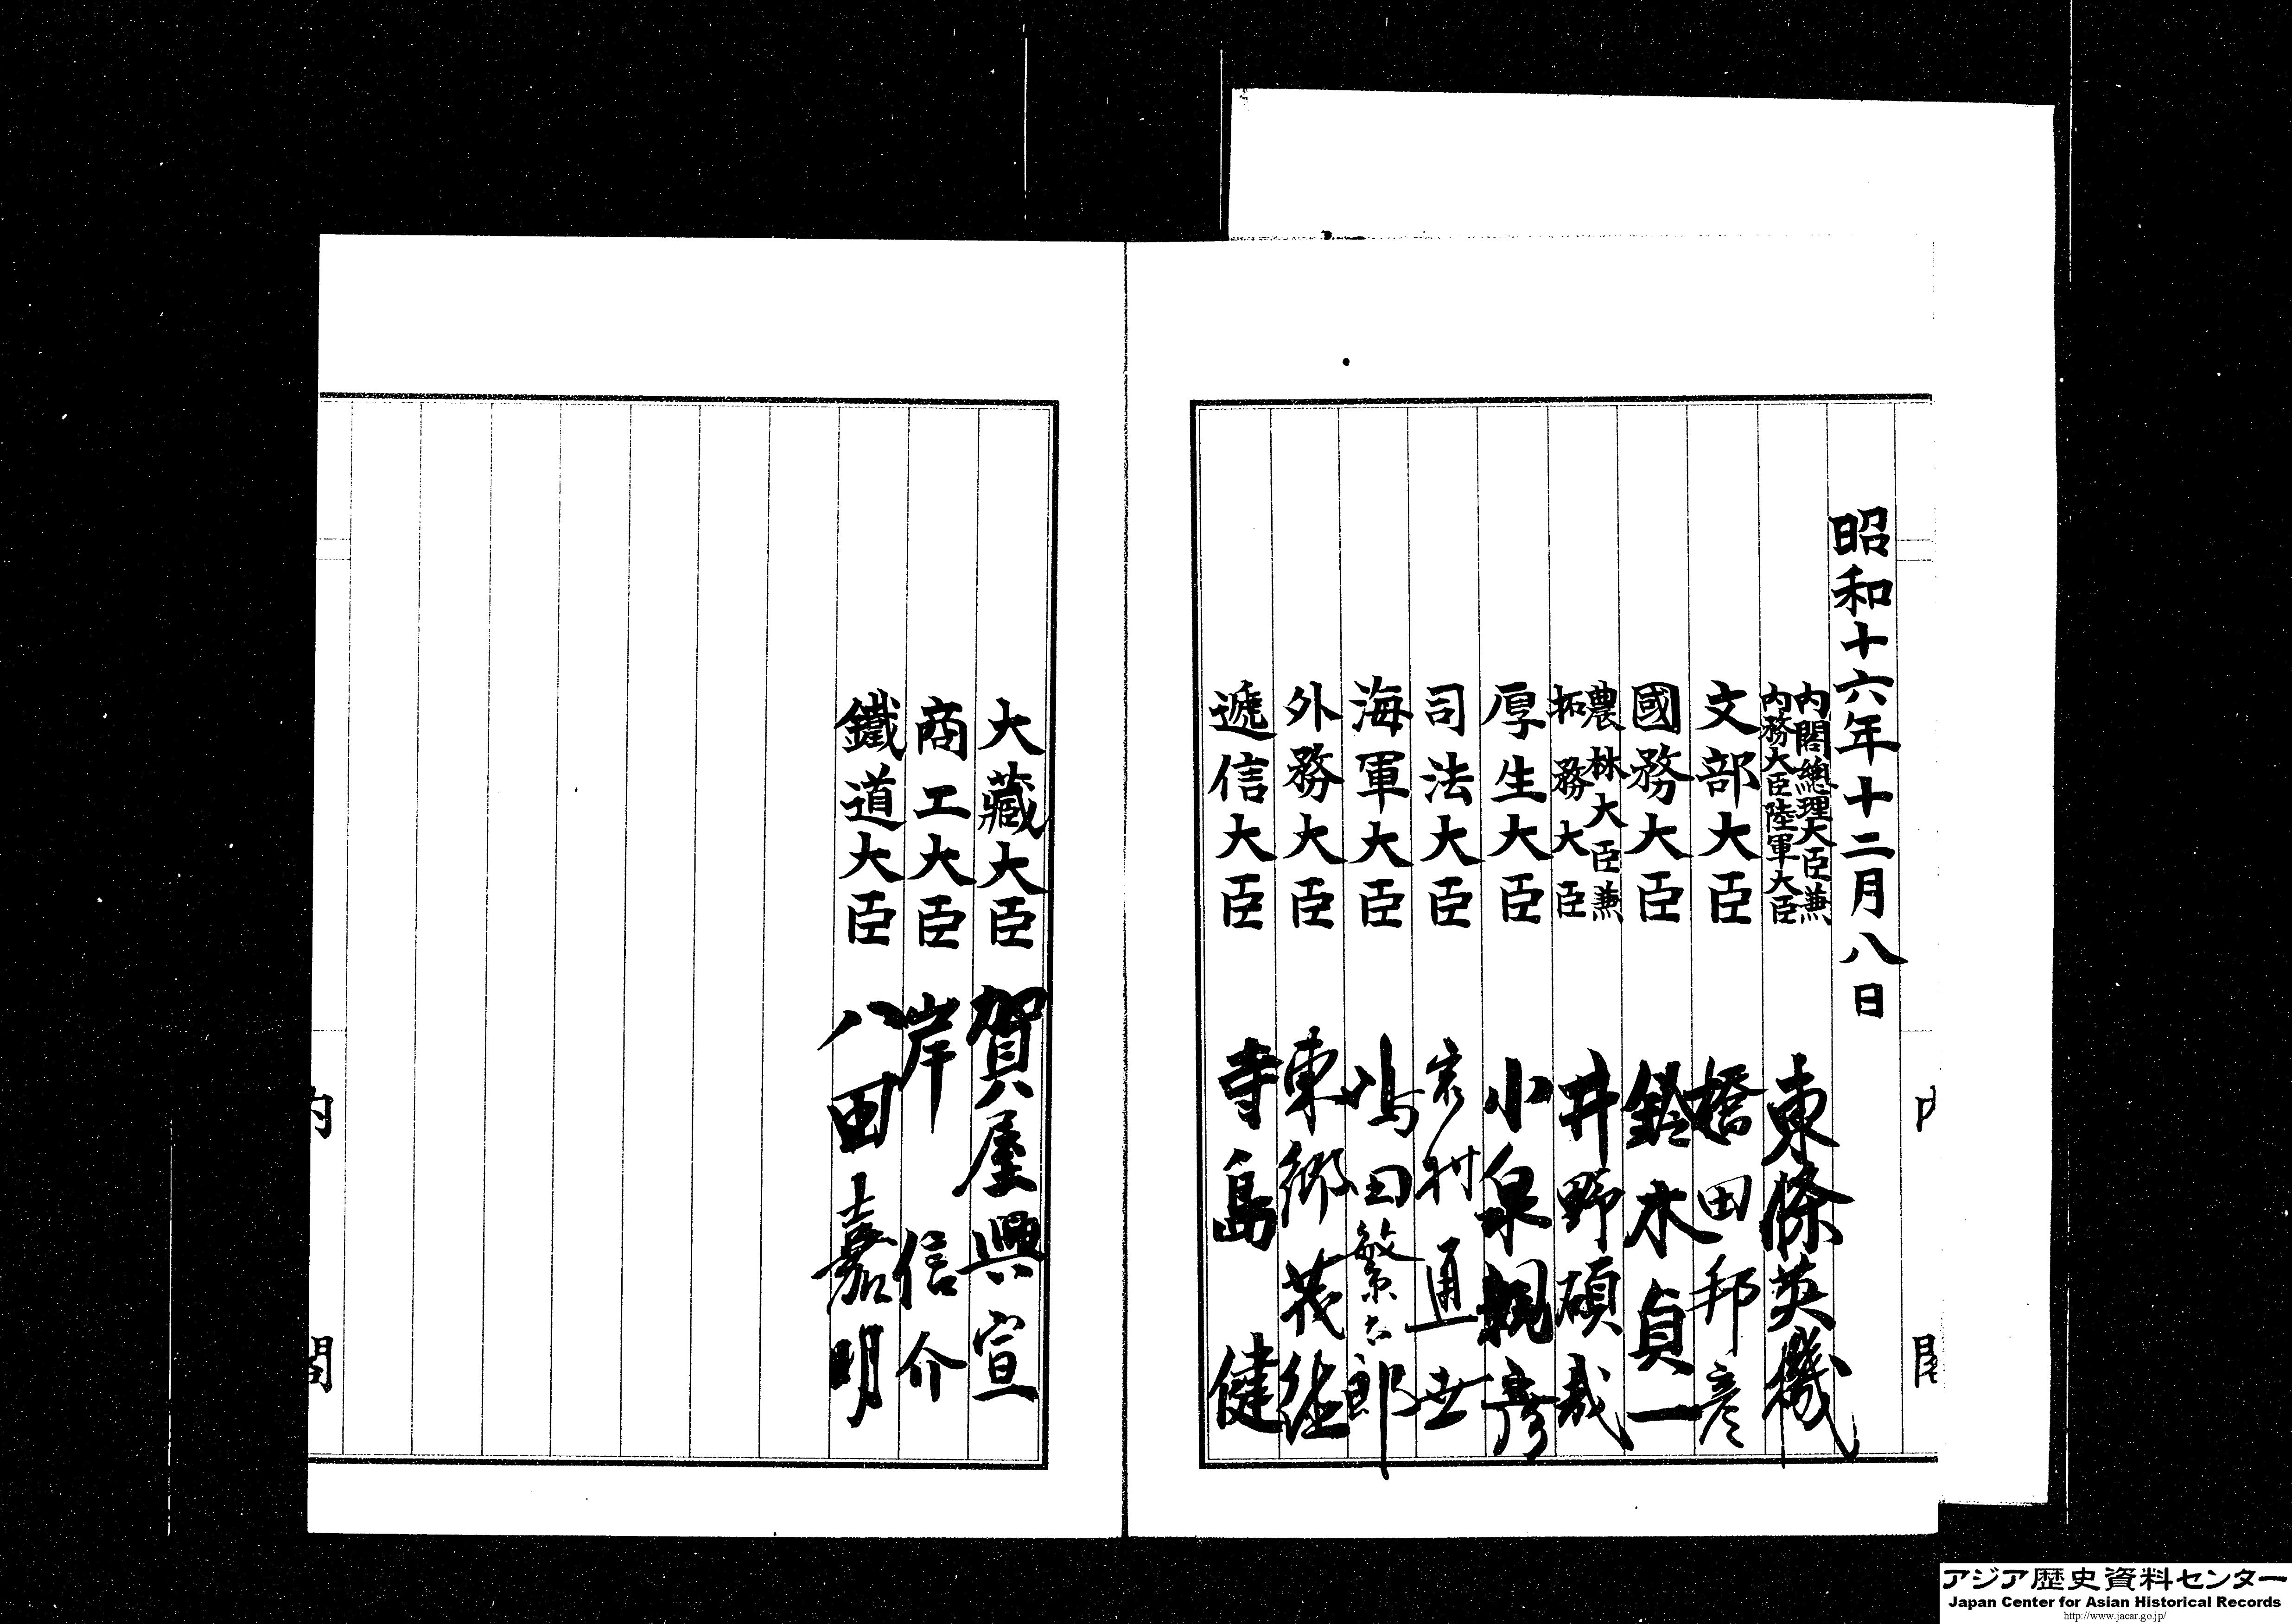 昭和十六年十二月八日
内閣總理大臣兼
内務大臣陸軍大臣 東條英機
文部大臣 橋田邦彦
國務大臣 鈴木貞一
農林大臣兼
拓務大臣 井野碩哉
厚生大臣 小泉親彦
司法大臣 岩村通世
海軍大臣 嶋田繁太郎
外務大臣 東郷茂徳
遞信大臣 寺島健
大藏大臣 賀屋興宣
商工大臣 岸信介
鐵道大臣 八田嘉明
内閣
アジア歴史資料センター
Japan Center for Asian Historical Records
http://www.jacar.go.jp/